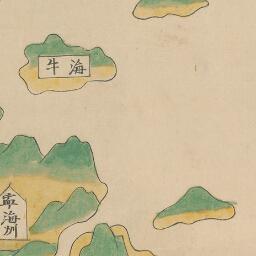 海牛
寧海州